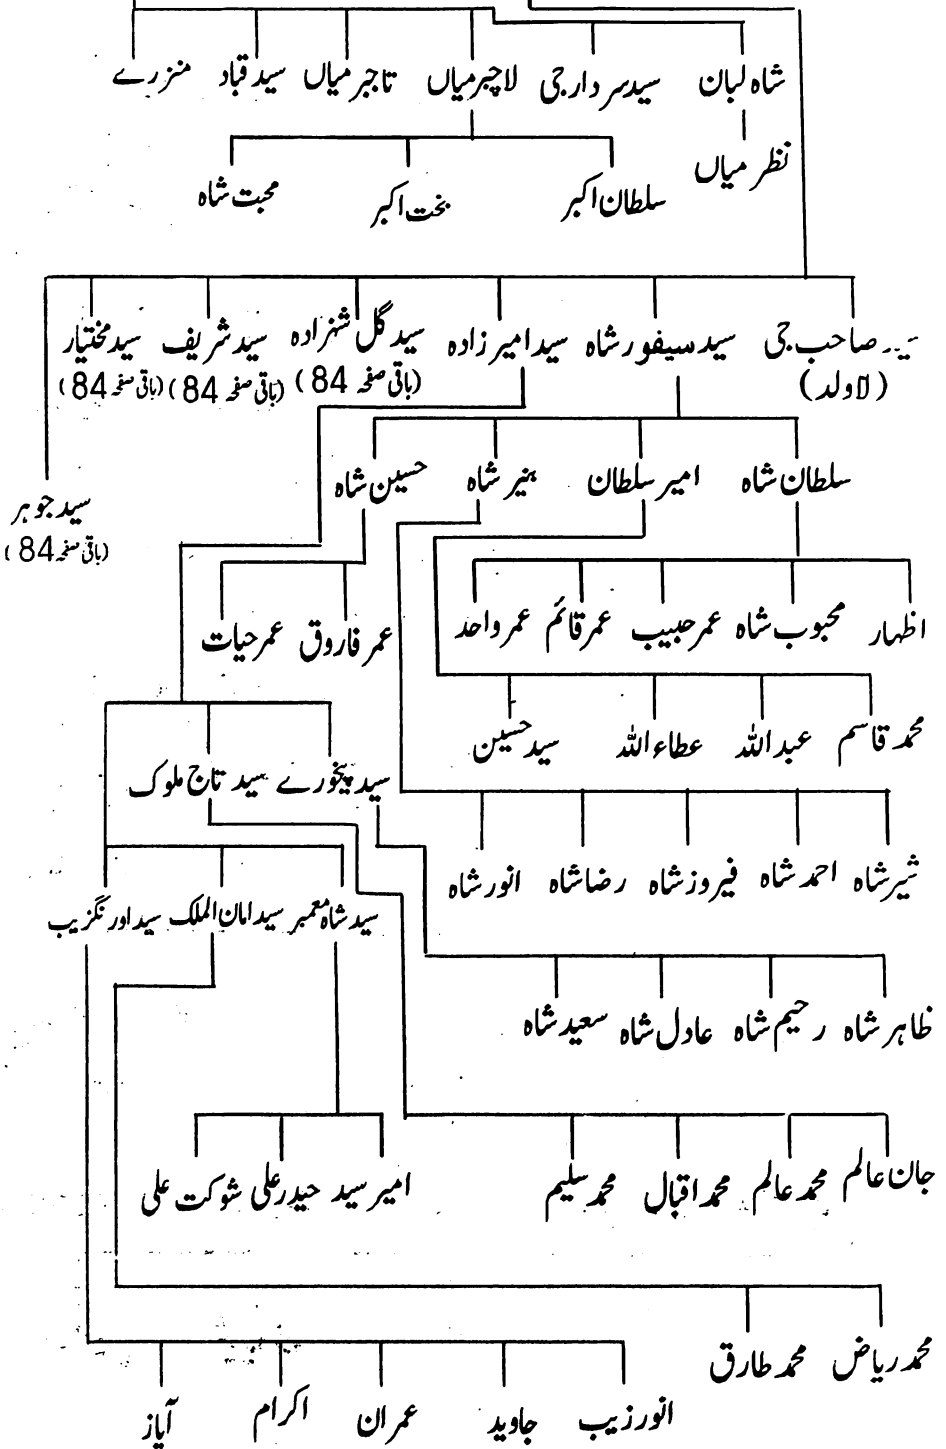 شاہ لبان سید سردارجی لاچبر میاں تاجبر میاں سید قباد منزرے
نظر میاں
سلطان اکبر بخت اکبر محبت شاہ
سید صاحب جی سید سیفور شاہ سید امیر زادہ سید گل شہزادہ سید شریف سید مختیار
(لاولد) (باقی صفحہ 84) (باقی صفحہ 84) (باقی صفحہ 84)
سلطان شاہ امیر سلطان بنیر شاہ حسین شاہ
سید جوہر
(باقی صفحہ 84)
اظہار محبوب شاہ عمر حبیب عمر قائم عمر واحد عمر فاروق عمر حیات
محمد قاسم عبداللہ عطاءاللہ سید حسین
سید پیخورے سید تاج ملوک
شیر شاہ احمد شاہ فیروز شاہ رضا شاہ انور شاہ
سید شاہ معمبر سید امان الملک سید اورنگزیب
ظاہر شاہ رحیم شاہ عادل شاہ سعید شاہ
جان عالم محمد عالم محمد اقبال محمد سلیم امیر سید حیدر علی شوکت علی
محمد ریاض محمد طارق
انور زیب جاوید عمران اکرام آیاز